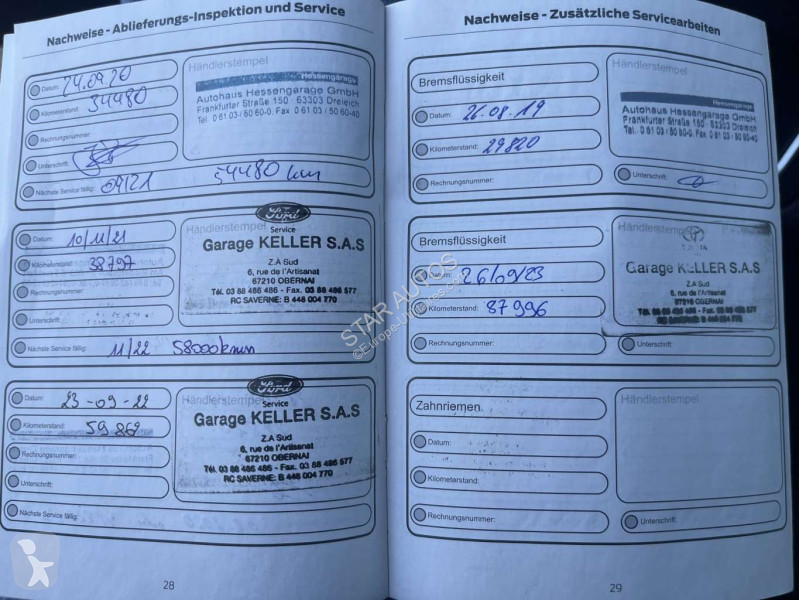 Nachweise - Ablieferungs-Inspektion und Service
Datum: 24.09.20
Kilometerstand: 34480
Rechnungsnummer:
Unterschrift:
Nächste Service fällig: 09/21 54480 km
Händlerstempel
Hessengarage
Autohaus Hessengarage GmbH
Frankfurter Straße 150 · 63303 Dreieich
Tel. 0 61 03 / 50 60-0. Fax 0 61 03 / 50 60-40
Datum: 10/11/21
Kilometerstand: 38797
Rechnungsnummer:
Unterschrift:
Nächste Service fällig: 11/22 58000
Händlerstempel
Ford
Service
Garage KELLER S.A.S
Z.A Sud
6, rue de l'Artisanat
67210 OBERNAI
Tél. 03 88 486 486 - Fax. 03 88 486 577
RC SAVERNE: B 448 004 770
Datum: 23-09-22
Kilometerstand: 59862
Rechnungsnummer:
Unterschrift:
Nächste Service fällig:
Händlerstempel
Ford
Service
Garage KELLER S.A.S
Z.A Sud
6, rue de l'Artisanat
67210 OBERNAI
Tél. 03 88 486 486 - Fax. 03 88 486 577
RC SAVERNE: B 448 004 770
28
Nachweise - Zusätzliche Servicearbeiten
Bremsflüssigkeit
Datum: 26.08.19
Kilometerstand: 29820
Rechnungsnummer:
Händlerstempel
Hessengarage
Autohaus Hessengarage GmbH
Frankfurter Straße 150 · 63303 Dreieich
Tel. 0 61 03 / 50 60-0. Fax 0 61 03 / 50 60-40
Unterschrift:
Bremsflüssigkeit
Datum: 26/09/23
Kilometerstand: 87996
Rechnungsnummer:
Händlerstempel
Garage KELLER S.A.S
Z.A Sud
6, rue de l'Artisanat
67210 OBERNAI
Tél. 03 88 486 486 - Fax. 03 88 486 577
RC SAVERNE: B 448 004 770
Unterschrift:
Zahnriemen
Datum:
Kilometerstand:
Rechnungsnummer:
Händlerstempel
Unterschrift:
29
STAR AUTOS